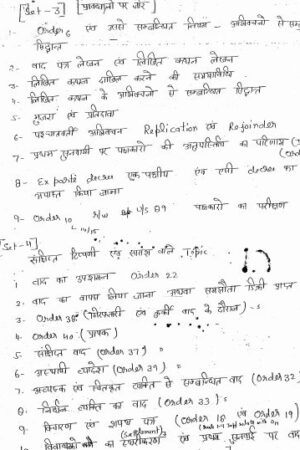 [Set-3] [प्रावधानों पर जोर]
1- Order 6 एवं उससे सम्बन्धित नियम - अभिवचनों से सम्ब
सिद्धान्त
2. वाद पत्र लेखन एवं लिखित कथन लेखन
3- लिखित कथन दाखिल करने की समयावधि
4- लिखित कथन के अभिवचनों से सम्बन्धित सिद्धान्त
5- मुजरा एवं प्रतिदावा
6- पश्चातवर्ती अभिवचन Replication एवं Rejoinder
7- प्रथम सुनवायी पर पक्षकारों की अनुपस्थिति का परिणाम (Or
8- Ex parte decree एक पक्षीय एवं एसी decree का
अपास्त किया जाना
9- Order 10 R/W U/S 89 पक्षकारों का परीक्षण
[Set-4]
संक्षिप्त टिप्पणी एवं सारांश वाले Topic
1 वाद का उपशमन Order 22
2. वाद का वापस लिया जाना अथवा समझौता डिक्री प्राप्त
3. Order 38 (गिरफ्तारी एवं कुर्की वाद के दौरान)
4. Order 40 (प्रापक)
5. संक्षिप्त वाद (Order 37)
6. अस्थायी व्यादेश (Order 39)
7- अल्पवयस्क एवं विकृतचित्त व्यक्ति से सम्बन्धित वाद (Order 32)
8- निर्धन व्यक्ति का वाद (Order 33)
9. विवरण एवं शपथ पत्र (Order 18 एवं Order 19)
(Settlement)
10 विवाद्यकों का स्थिरीकरण एवं प्रथम सुनवाई पर वाद